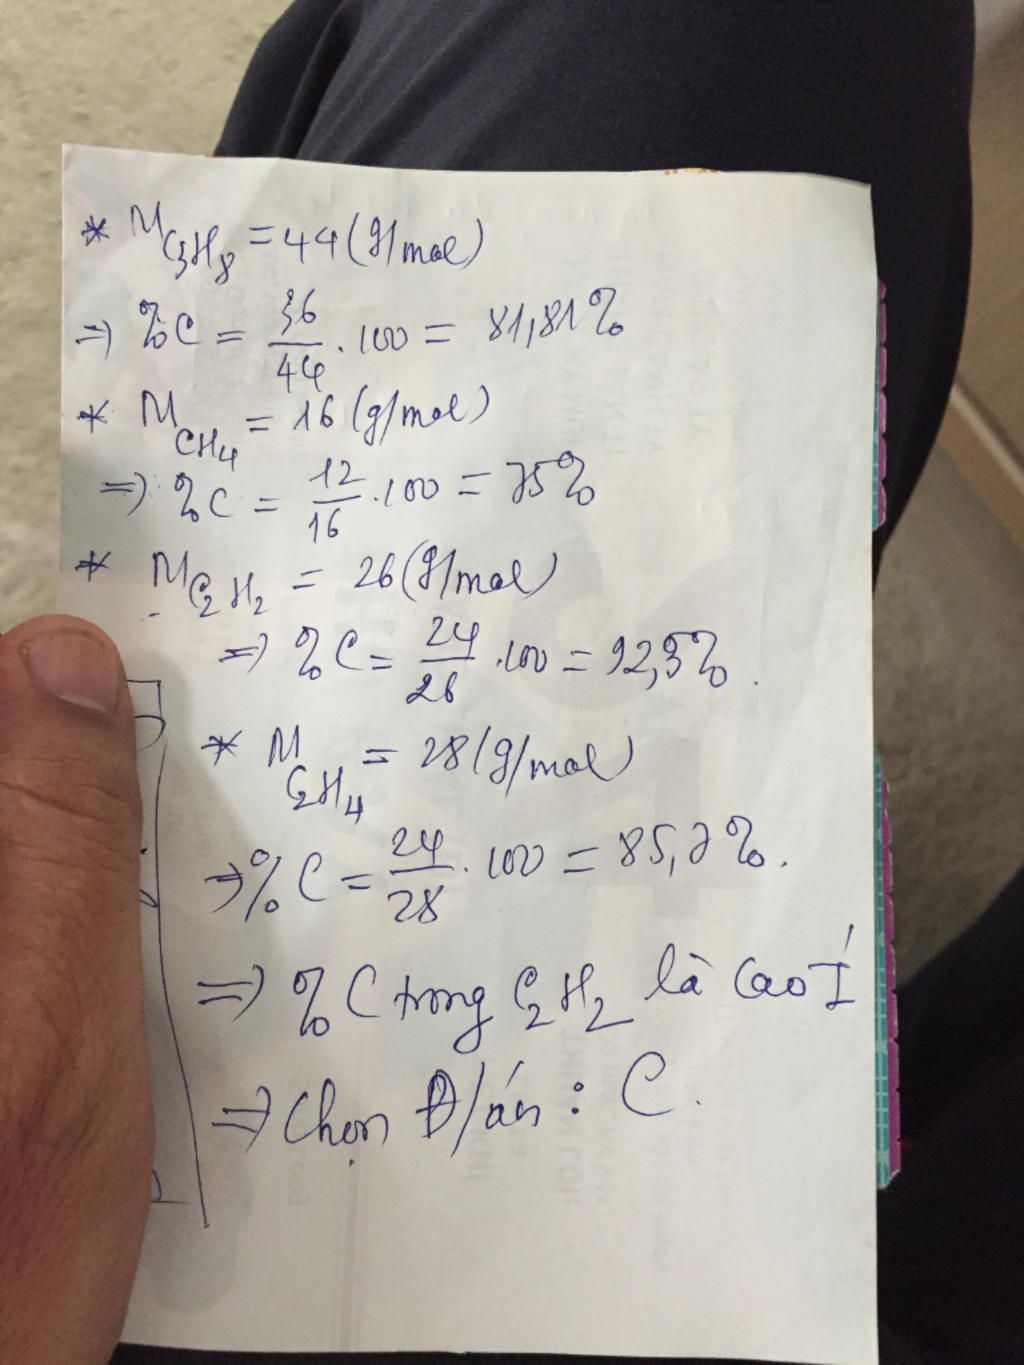 * M C3H8 = 44 (g/mol)
=> %C = 36/44 . 100 = 81,81%
* M CH4 = 16 (g/mol)
=> %C = 12/16 . 100 = 75%
* M C2H2 = 26 (g/mol)
=> %C = 24/26 . 100 = 92,3%.
* M C2H4 = 28 (g/mol)
=> %C = 24/28 . 100 = 85,7%.
=> %C trong C2H2 là cao I
=> Chọn Đ/án : C.